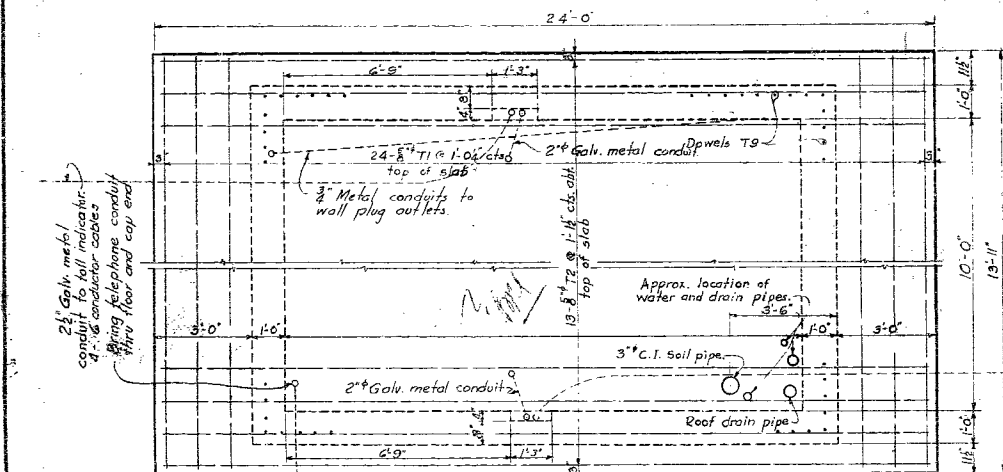 24'-0"
3"
6'-9"
1'-3"
4"
8"
1'-0"
1½"
Dowels T9
2"ᶲ Galv. metal conduit
24-⅝"ᶲ T1 @ 1'-0¼" cts
top of slab
¾" Metal conduits to
wall plug outlets.
3"
3"
2½" Galv. metal
conduit to Wall indicator.
4-#6 conductor cables
Bring telephone conduit
thru floor and cap end
13-⅝"ᶲ T2 @ 1'-1½" cts. abt.
top of slab
10'-0"
13'-11"
Approx. location of
water and drain pipes.
3'-6"
3'-0"
1'-0"
1'-0"
3'-0"
3"ᶲ C.I. Soil pipe
2"ᶲ Galv. metal conduit
Roof drain pipe
8"
4"
6'-9"
1'-3"
3"
1'-0"
1½"